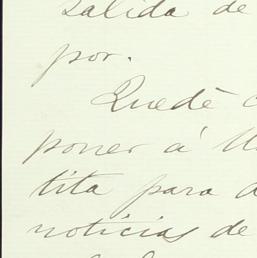 salida de
por.
Quedé
poner á
tita para
noticias de